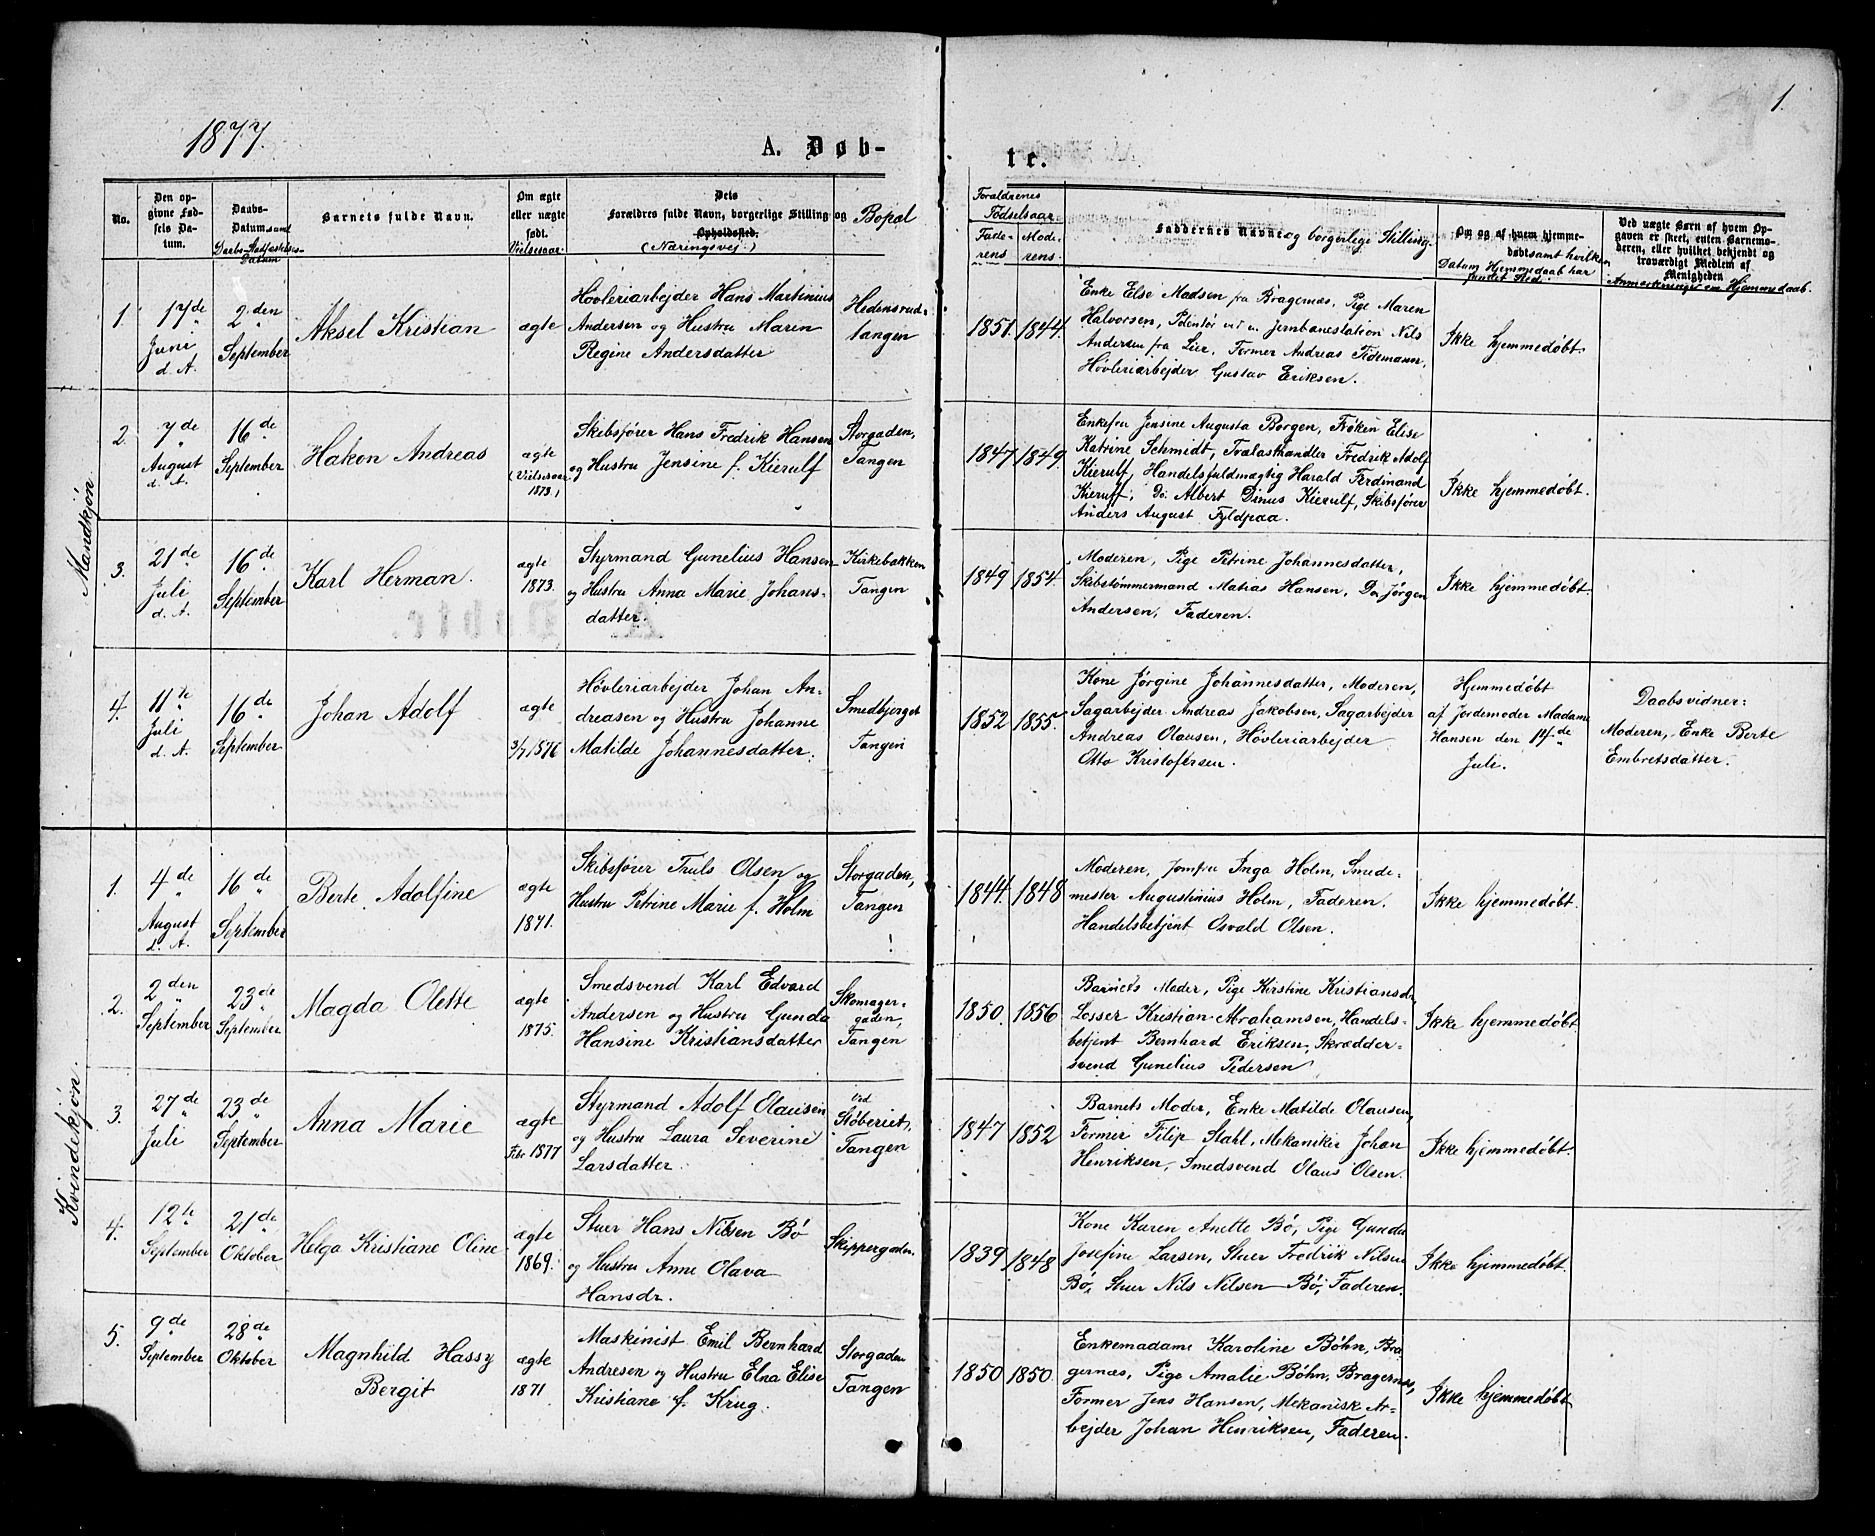 1877.
1.
A. Døb-
te.
No.
Den op-
givne Fød-
sels Da-
tum.
Daabs-
Datum samt
Daabs-Stadfæstelses-
Datum
Barnets fulde Navn.
Om ægte
eller uægte
født.
Vielsesaar.
Dets
Forældres fulde Navn, borgerlige Stilling og Bopæl
Opholdssted.
(Næringsvej.)
Forældrenes
Fødselsaar
Fade-
rens
Mode-
rens.
Faddernes Navne og borgerlige Stilling.
Om og af hvem hjemme-
døbt samt hvilken
Datum Hjemmedaab har
fundet Sted.
Ved uægte Børn af hvem Op-
gaven er skeet, enten Barnemo-
deren, eller hvilket bekjendt og
troværdigt Medlem af
Menigheden
Anmærkninger om Hjemmedaab.
Mandkjøn
1.
17de
Juni
d. A.
2den
September
Aksel Kristian
ægte
Høvleriarbejder Hans Martinius
Andersen og Hustru Maren
Regine Andersdatter
Hedensrud-
tangen
1851. 1844.
Enke Else Madsen fra Bragernæs, Pige Maren
Halvorsen, Jernbanestation Nils
Andersen fra Lier, Former Andreas Tidemann,
Høvleriarbejder Gustav Eriksen.
Ikke hjemmedøbt.
2
7de
August
d. A.
16de
September
Hakon Andreas
ægte
(Vielsesaar
1873.)
Skibsfører Hans Fredrik Hansen
og Hustru Jensine f. Kierulf
Storgaden,
Tangen
1847 1849.
Enkefru Jensine Augusta Borgen, Frøken Elise
Katrine Schmidt, Tralasthandler Fredrik Adolf
Kierulf, Handelsfuldmægtig Harald Ferdinand
Kierulf, Do: Albert Dinus Kierulf, Skibsfører
Anders August Fyldpaa.
Ikke hjemmedøbt.
3.
21de
Juli
d. A.
16de
September
Karl Herman.
ægte
1873.
Styrmand Gunelius Hansen
og Hustru Anna Marie Johans-
datter.
Kirkebakken
Tangen
1849 1854.
Moderen, Pige Petrine Johannesdatter,
Skibstømmermand Matias Hansen, Do Jørgen
Andersen, Faderen.
Ikke hjemmedøbt.
4.
11te
Juli
d. A.
16de
September
Johan Adolf
ægte
3/7 1876
Høvleriarbejder Johan An-
dreasen og Hustru Johanne
Matilde Johannesdatter.
Smedbjerget
Tangen
1852 1855.
Kone Jørgine Johannesdatter, Moderen,
Sagarbejder Andreas Jakobsen, Sagarbejder
Andreas Olausen, Høvleriarbejder
Otto Kristofersen.
Hjemmedøbt
af Jordemoder Madame
Hansen den 14de
Juli.
Daabsvidner:
Moderen, Enke Berte
Embretsdatter.
Kvindekjøn
1.
4de
August
d. A.
16de
September
Berte Adolfine
ægte
1871.
Skibsfører Truls Olsen og
Hustru Petrine Marie f. Holm
Storgaden,
Tangen
1844. 1848
Moderen, Jomfru Inga Holm, Smede-
mester Augustinius Holm, Faderen,
Handelsbetjent Osvald Olsen.
Ikke hjemmedøbt.
2.
2den
September
23de
September
Magda Olette
ægte
1875.
Smedsvend Karl Edvard
Andersen og Hustru Gunda
Hansine Kristiansdatter
Skomager-
gaden,
Tangen
1850. 1856
Barnets Moder, Pige Kirstine Kristiansdr
Losser Kristian Abrahamsen, Handels-
betjent Bernhard Eriksen, Skrædder-
svend Gunelius Pedersen
Ikke hjemmedøbt
3.
27de
Juli
23de
September
Anna Marie
ægte
Febr 1877
Styrmand Adolf Olausen
og Hustru Laura Severine
Larsdatter.
ved
Støberiet,
Tangen
1847 1852
Barnets Moder, Enke Matilde Olausen,
Former Filip Stahl, Mekaniker Johan
Henriksen, Smedsvend Olaus Olsen.
Ikke hjemmedøbt.
4.
12te
September
21de
Oktober
Helga Kristiane Oline
ægte
1869.
Stuer Hans Nilsen Bø
og Hustru Anne Olava
Hansdr.
Skippergaden.
1839 1848
Kone Karen Anette Bø, Pige Gunda
Josefine Larsen, Stuer Fredrik Nilsen
Bø, Stuer Nils Nilsen Bø, Faderen.
Ikke hjemmedøbt.
5.
9de
September
28de
Oktober
Magnhild Hassy
Bergit
ægte
1871.
Maskinist Emil Bernhard
Andresen og Hustru Elna Elise
Kristiane f. Krug.
Storgaden
Tangen
1850 1850.
Enkemadame Karoline Bøhn, Bra
gernæs, Pige Amalie Bøhn, Bragernæs,
Former Jens Hansen, Mekanisk Ar-
bejder Johan Henriksen, Faderen.
Ikke hjemmedøbt